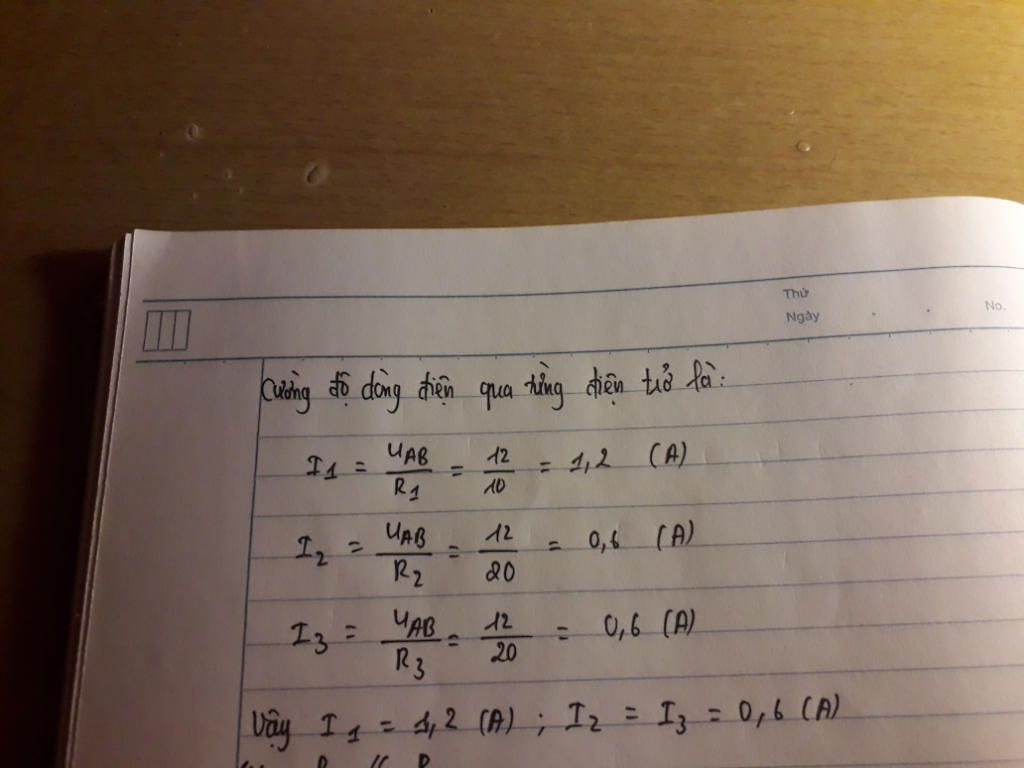 Thứ
Ngày . . No.
Cường độ dòng điện qua từng điện trở là:
I1 = UAB/R1 = 12/10 = 1,2 (A)
I2 = UAB/R2 = 12/20 = 0,6 (A)
I3 = UAB/R3 = 12/20 = 0,6 (A)
Vậy I1 = 1,2 (A) ; I2 = I3 = 0,6 (A)